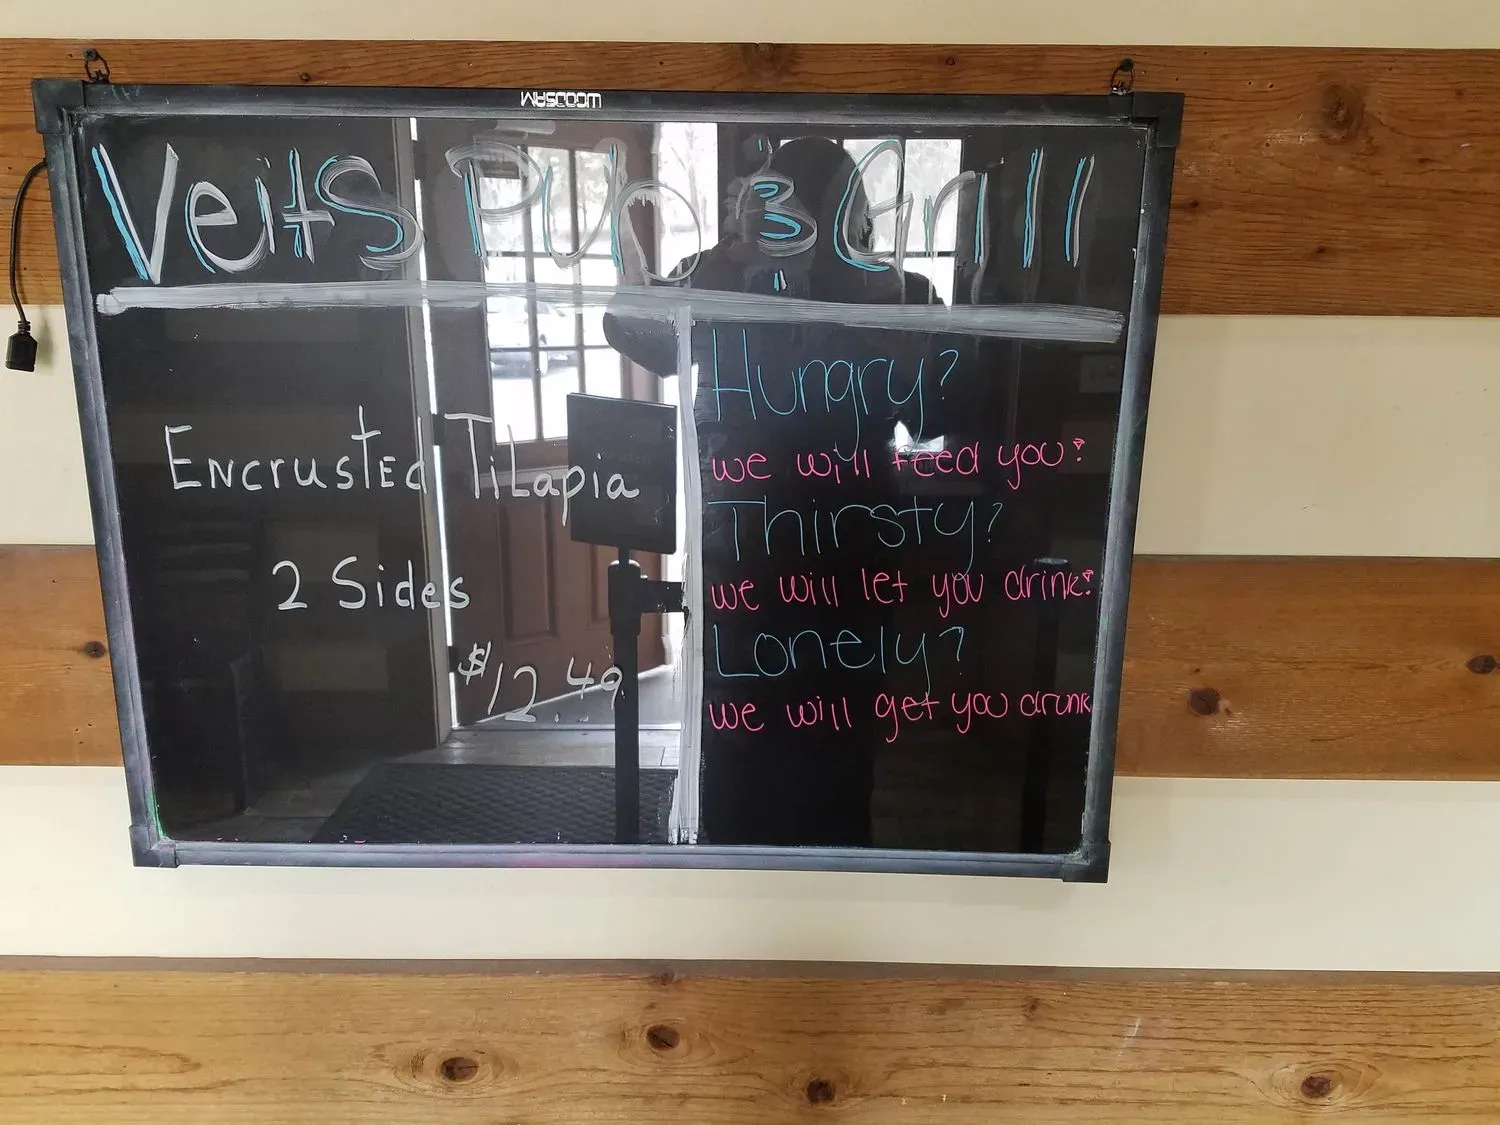 WOODSAM
Veits Pub & Grill
Encrusted Tilapia
2 Sides
$12.49
Hungry?
we will feed you!
Thirsty?
we will let you drink!
Lonely?
we will get you drunk